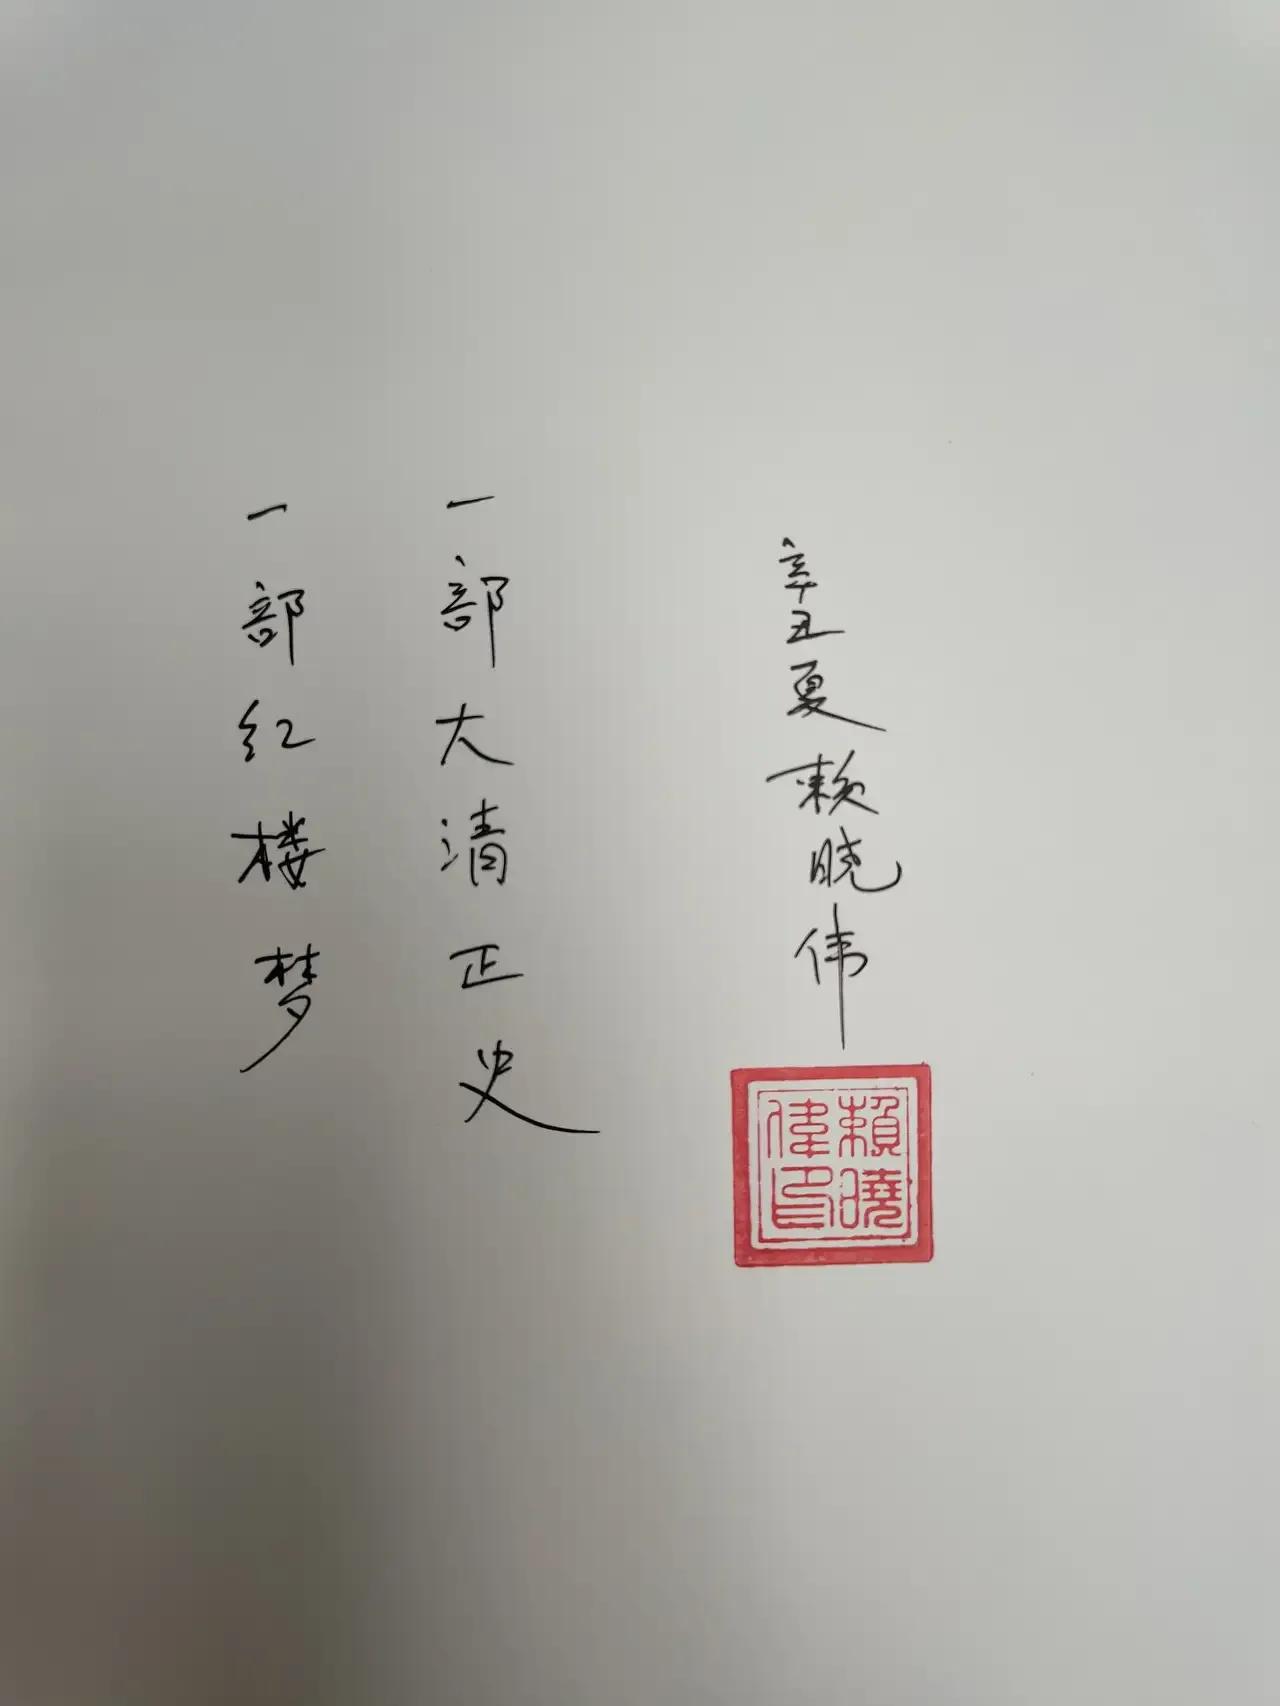 一部红楼梦
一部大清正史
辛丑夏赖晓伟
賴曉偉印